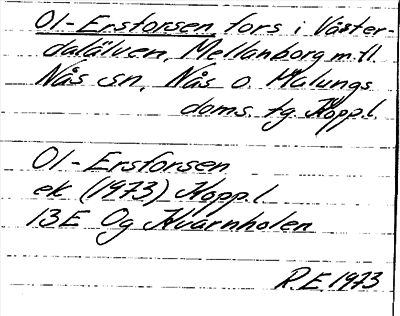 Ol-Ersforsen, fors i Väster-
dalälven, Mellanborg m.fl.
Nås sn, Nås o. Malungs
doms. tg. Kopp.l.
Ol-Ersforsen
ek (1973) Kopp.l.
13E 0g Kvarnholen
R.E. 1973